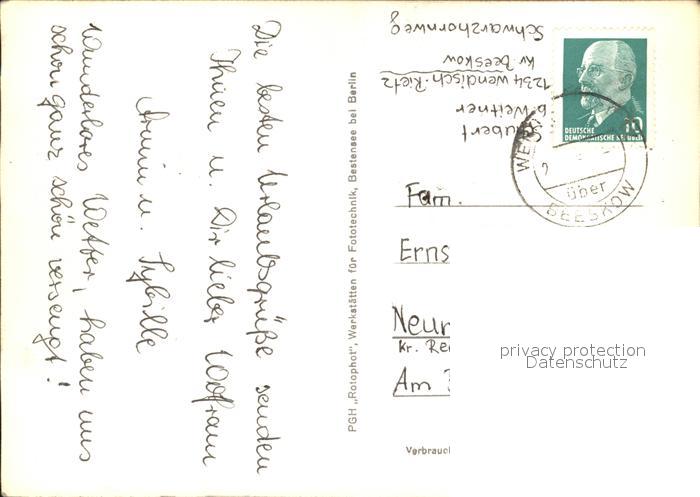 Die besten Urlaubsgrüße senden
Ihnen u. Dir lieber Wolfram
Armin u. Sybille
Wunderbares Wetter, haben uns
schon ganz schön versengt!
PGH „Rotophot", Werkstätten für Fototechnik, Bestensee bei Berlin
Schubert
b. Weitner
1234 Wendisch-Rietz
Kr. Beeskow
Schwarzhornweg
DEUTSCHE
DEMOKRATISCHE REPUBLIK
10
über
BEESKOW
Fam.
Erns
Neur
Kr. Rei
Am
privacy protection
Datenschutz
Verbrauc